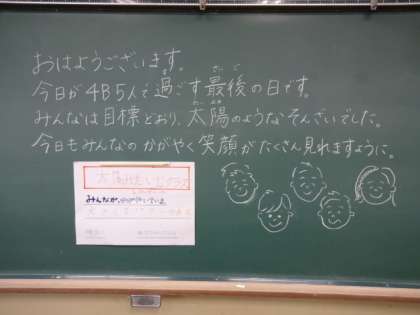 おはようございます。
今日が4B5人で過ごす最後の日です。
みんなは目標どおり、太陽のようなそんざいでした。
今日もみんなのかがやく笑顔がたくさん見れますように。
太陽みたいなクラス
みんなが、